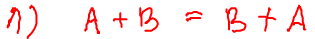 1) A + B = B + A